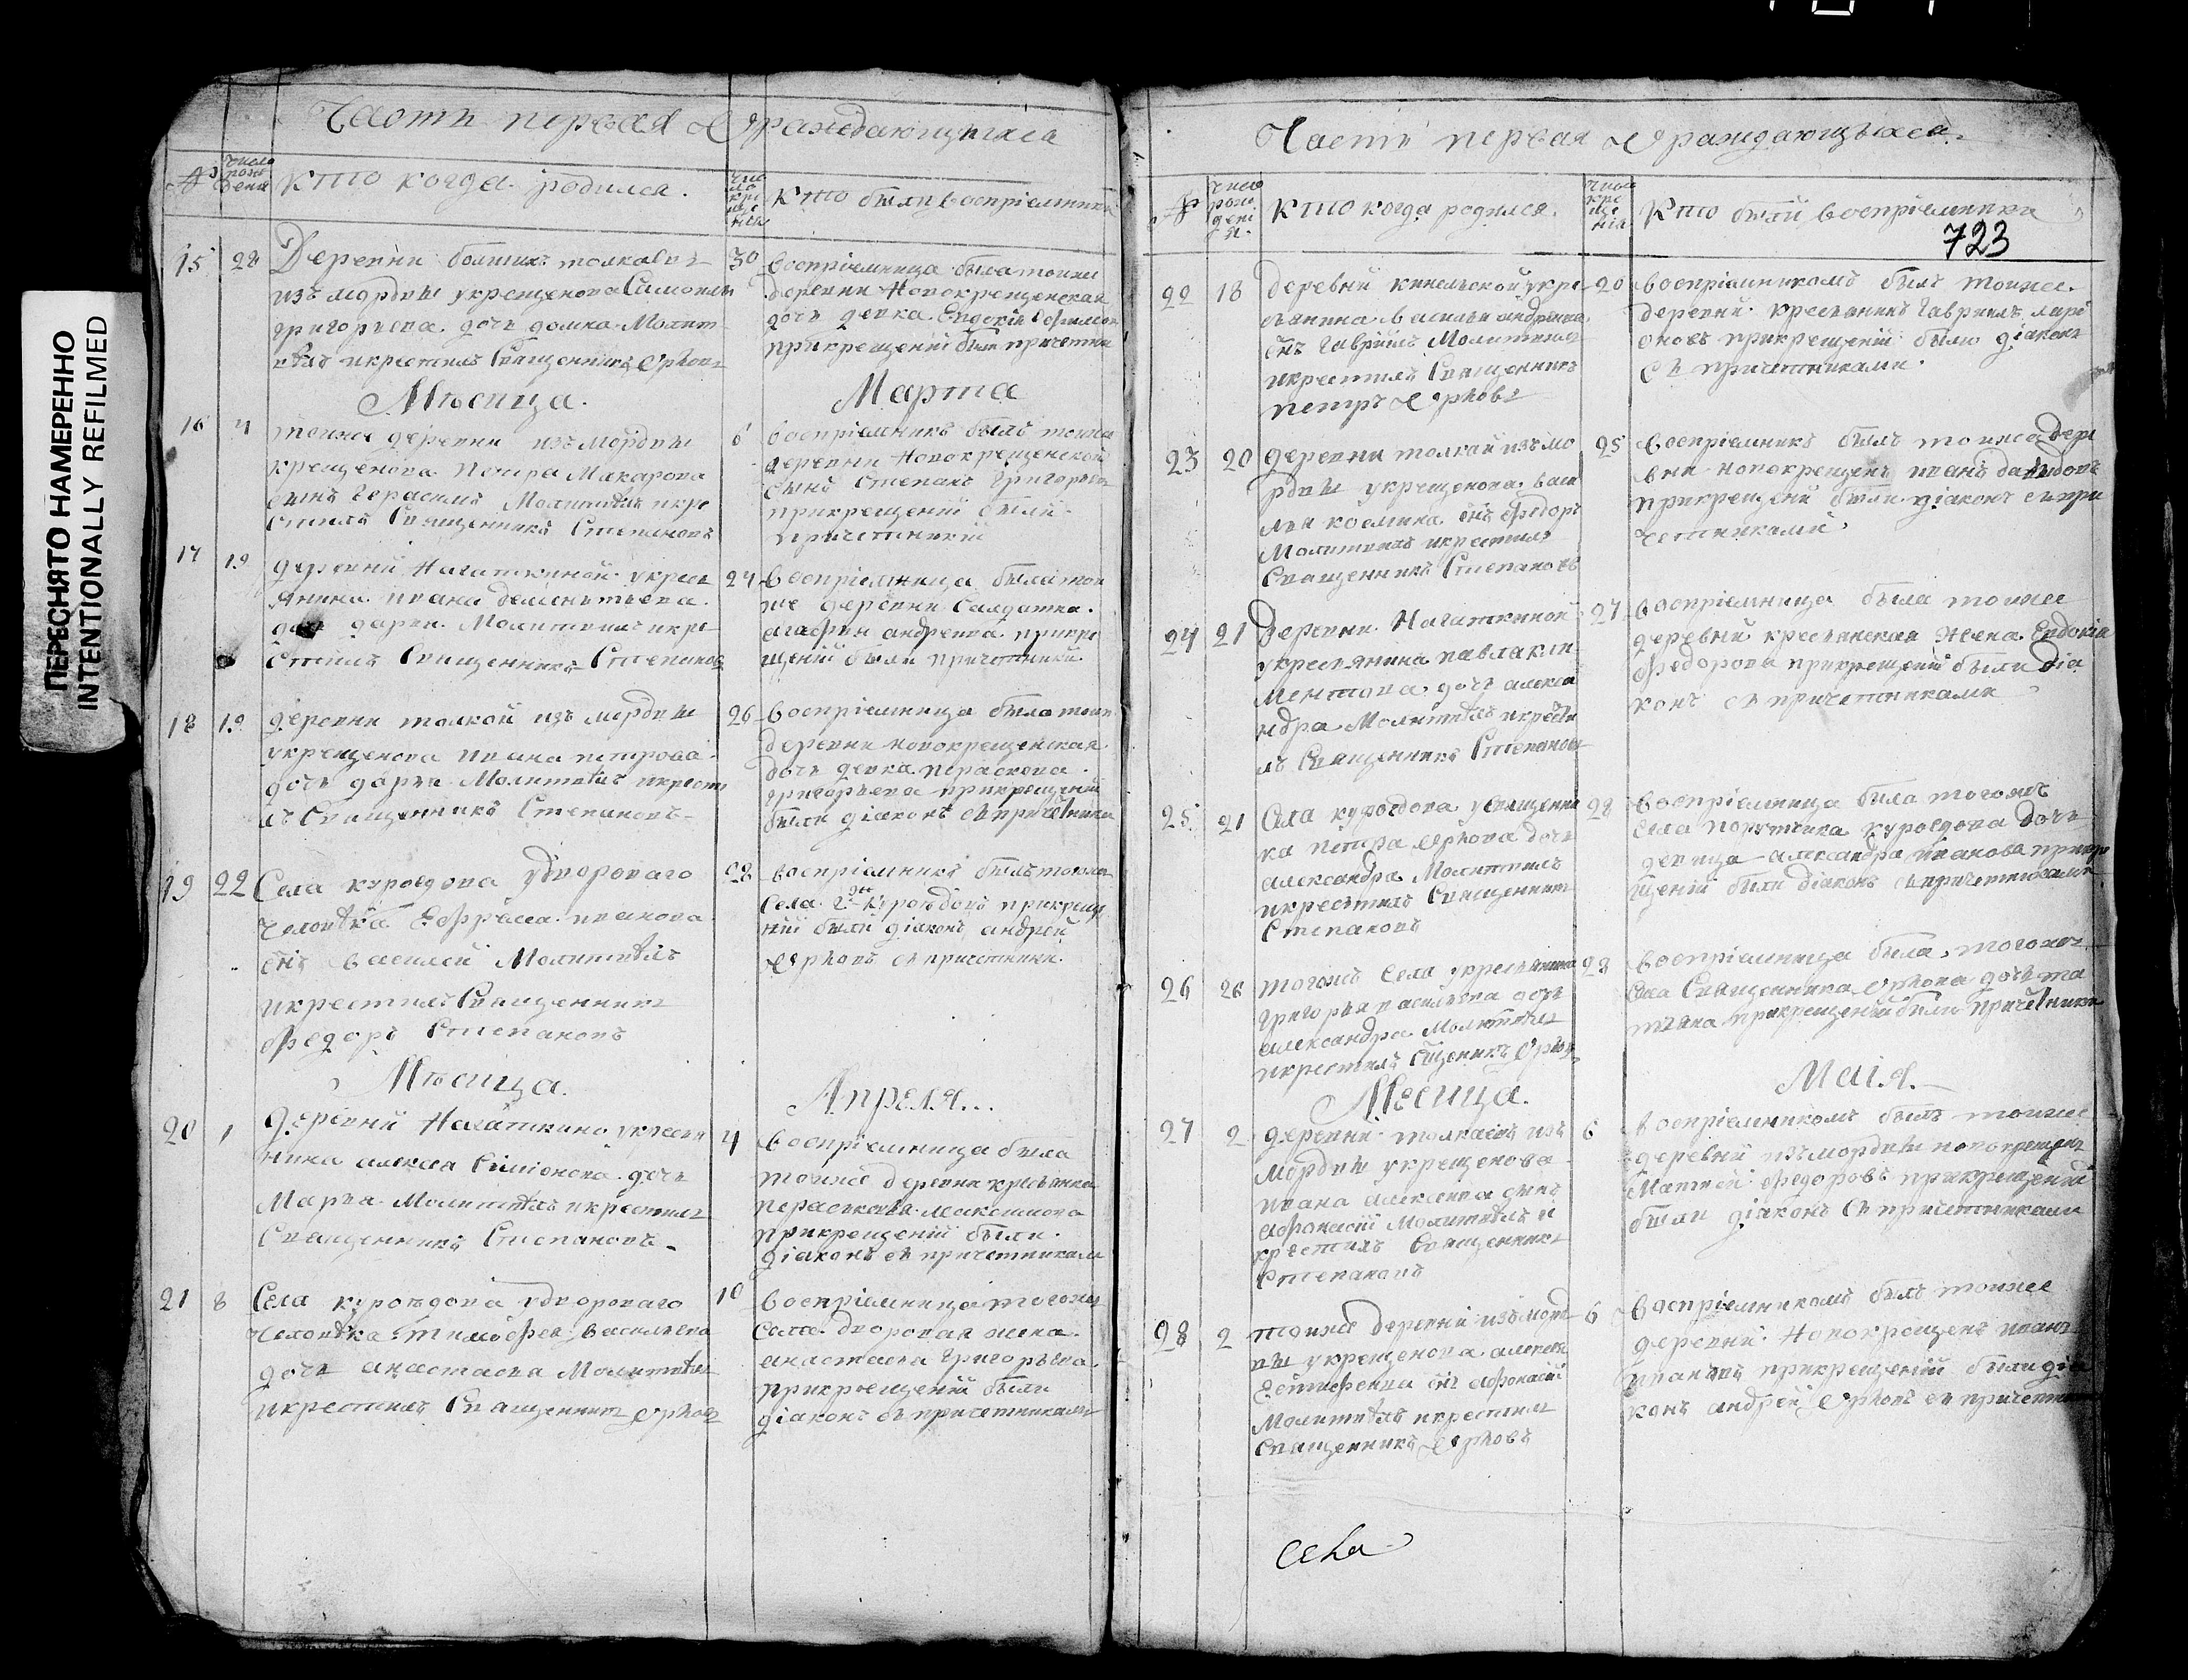 ПЕРЕСНЯТО НАМЕРЕННО
INTENTIONALLY REFILMED
Часть первая О раждающихся
№ число рождения
кто когда родился.
число крещения
кто были восприемники
15 28 Деревни болших толкаевъ
изъ мордвы укрещенова Симона
григорьева дочь домна Молит
вилъ икрестилъ Священникъ Орловъ
30 восприемница была тоижъ
деревни Новокрещенская
дочь девка Евдокия
прикрещении были причетники
Месяца. Марта
16 4 тоиже деревни изъ мордвы
крещенова Петра Макарова
сынъ Герасимъ Молитвилъ икре
стилъ Священникъ Степановъ
6 восприемникъ былъ тоиже
деревни Новокрещенской
сынъ Степанъ Григорьевъ
прикрещении были
причетники
17 19 деревни Нагаткиной укрест
янина ивана дементьева
дочь дарья Молитвилъ икре
стилъ Священникъ Степановъ
24 восприемница была тои
же деревни Салдатка
агафия андреева прикре
щении были причетники
18 19 деревни толкой изъ мордвы
укрещенова ивана петрова
дочь дарья Молитвилъ икрести
лъ Священникъ Степановъ
26 восприемница была тоиж
деревни новокрещенская
дочь девка параскова
григорьева прикрещении
были диаконъ съ причетники
19 22 Села куроедова удвороваго
человѣка Ефрема иванова
снъ василей Молитвилъ
икрестилъ Священникъ
Федоръ Степановъ
28 восприемникъ былъ тогож
села Гднъ куроѣдовъ прикреще
нии были диаконъ андрей
Орловъ съ причетники.
Месяца. Апреля...
20 1 деревни Нагаткино укрестя
нина алексея Симионова дочь
Марья Молитвилъ икрестилъ
Священникъ Степановъ
4 восприемница была
тоиже деревни крестьянка
Максимова
прикрещении были
диаконъ съ причетниками
21 8 Села куроѣдова удвороваго
человѣка тимофея васильева
дочь анастасия Молитвилъ
икрестилъ Священникъ Орловъ
10 восприемница тогожъ
села дворовая жена
анастасья григорьева
прикрещении были
диаконъ съ причетниками
Часть первая О раждающихся.
№ число рождения
кто когда родился.
число крещения
Кто были восприемники
723
22 18 деревни кинельской укре
стьянина василья андреева
снъ гавриилъ Молитвилъ
икрестилъ Священникъ
петръ Орловъ
20 восприемникомъ былъ тоиже
деревни крестьянинъ гаврилъ лари
оновъ прикрещении были диаконъ
съ причетниками.
23 20 деревни толкай изъ мо
рдвы укрещенова васи
лья козмина снъ Федоръ
Молитвилъ икрестилъ
Священникъ Степановъ
25 восприемникъ былъ тоиже дере
вни новокрещенъ иванъ давыдовъ
прикрещении были диаконъ съ при
четниками.
24 21 Деревни Нагаткиной
укрестьянина павла кли
ментова дочь алекса
ндра Молитвилъ икрести
лъ Священникъ Степановъ
27 восприемница была тоиже
деревни крестьянская жена Евдокия
Федорова прикрещении были диа
конъ съ причетниками
25 21 Села куроедова усвященни
ка петра Орлова дочь
александра Молитвилъ
икрестилъ Священникъ
Степановъ
28 восприемница была тогожъ
села порутчика куроедова дочь
девица александра иванова прикре
щении были диаконъ съ причетниками
26 26 тогожъ села укрестьянина
григорья васильева дочь
александра Молитвилъ
икрестилъ сщеникъ Орловъ
28 восприемница была тогожъ
села Священника Орлова дочь та
тьяна прикрещении были причетники
Месяца. Маия.
27 2 деревни толкаевъ изъ
мордвы укрещенова
ивана алексеева сынъ
афонасий Молитвилъ и
крестилъ Священникъ
Степановъ
6 восприемникомъ былъ тоиже
деревни изъ мордвы новокрещенъ
Матвей Федоровъ прикрещении
были диаконъ съ причетниками
28 2 тоиже деревни изъ морд
вы укрещенова алексея
снъ афонасий
Молитвилъ икрестилъ
Священникъ Орловъ
6 восприемникомъ былъ тоиже
деревни новокрещенъ иванъ
ивановъ прикрещении были диа
конъ андрей Орловъ съ причетники
села